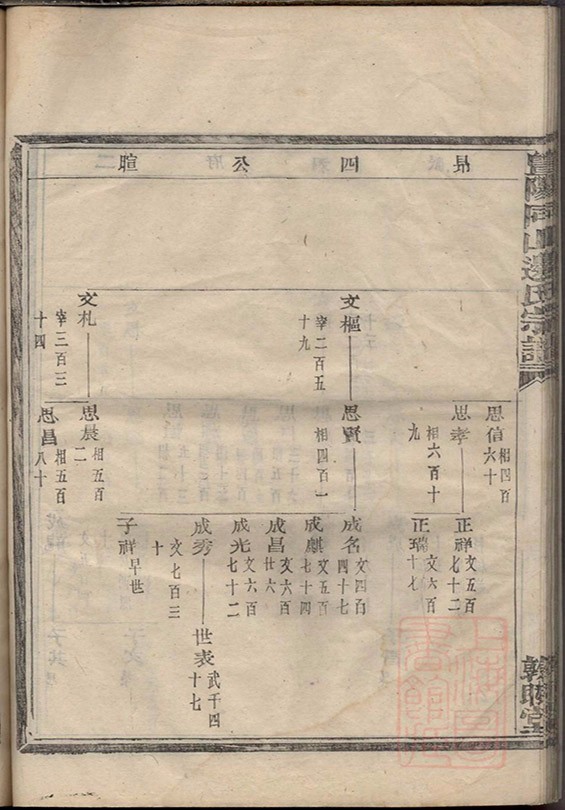 暨陽同山邊氏宗譜
昂四公暄
思信 相四百六十
思孝 相六百十九
正祥 文五百七十二
正瑞 文六百十七
文樞 宰二百五十九
思賢 相四百一
成名 文四百四十七
成麒 文五百七十四
成昌 文六百廿六
成光 文六百七十二
成秀 文七百三十
世表 武千四十七
子祥 早世
文札 宰三百三十四
思晨 相五百二
思昌 相五百八十
敦睦堂